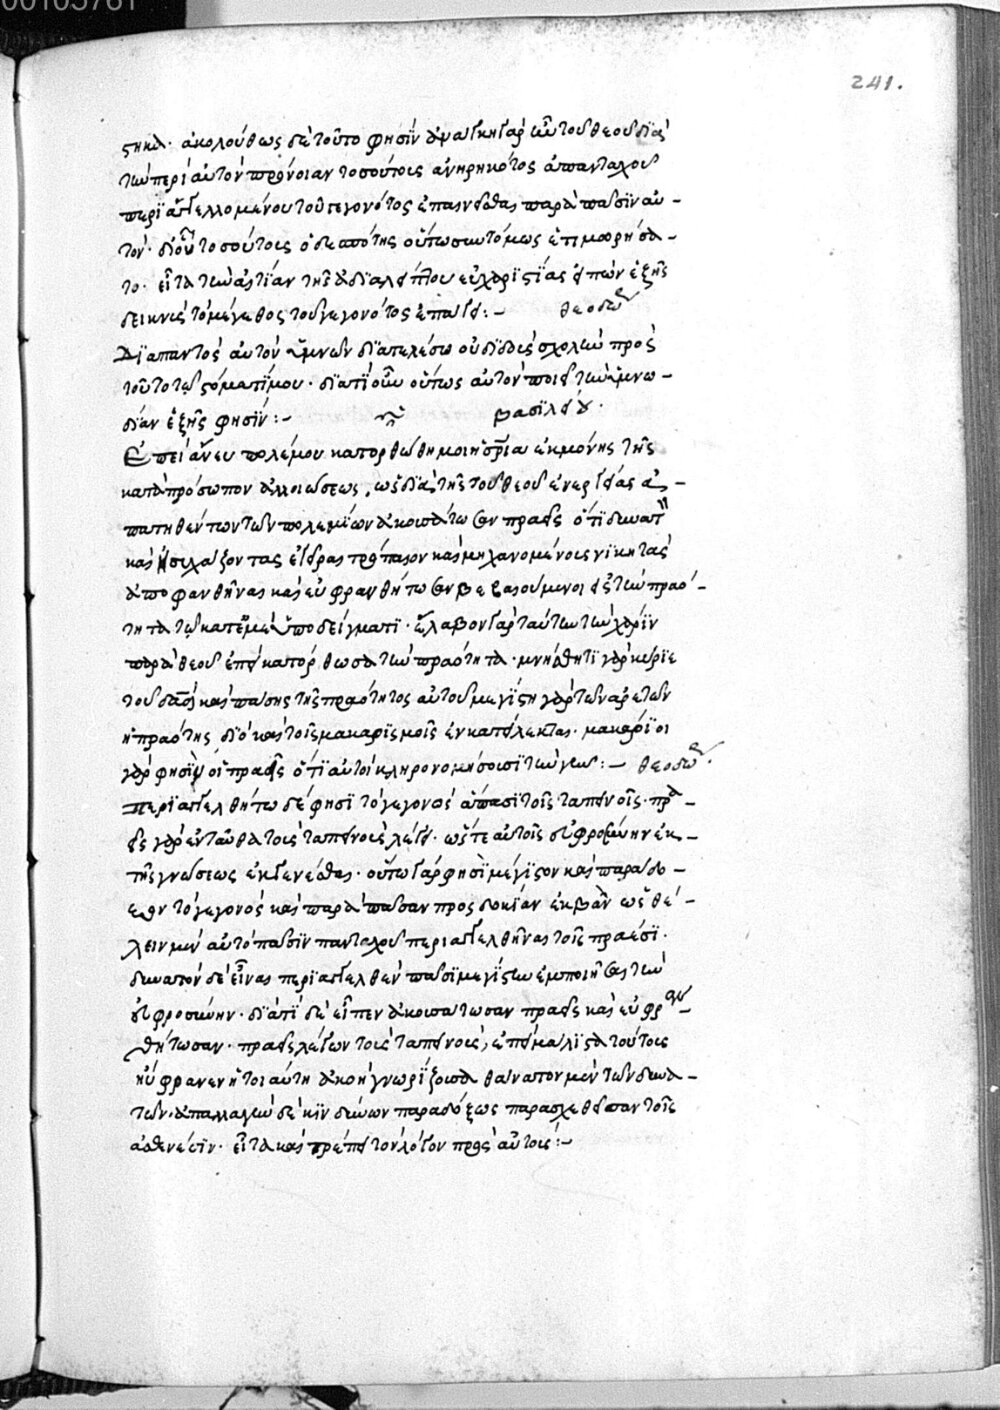 00105761
241.
στηκα· ἀκολούθως δὲ τοῦτο φησὶν ἀνάγκη γὰρ ἦν τοῦ θεοῦ διὰ
τὴν περὶ αὐτὸν πρόνοιαν τοσούτους ἀνῃρηκότος ἁπανταχοῦ
περιαγγελλομένου τοῦ γεγονότος ἐπαινεῖσθαι παρὰ πᾶσιν αὐ-
τόν· τοσούτους ὁ δεσπότης οὕτω συντόμως ἐτιμωρήσα-
το· εἶτα τὴν αἰτίαν τῆς ἀδιαλείπτου εὐχαριστίας εἰπὼν ἑξῆς
δεικνὺς τὸ μέγεθος τοῦ γεγονότος ἐπάγει:- θεοδώ
Διαπαντὸς αὐτὸν ὑμνῶν διατελέσω οὐ διδοὺς σχολὴν πρὸς
τοῦτο τῷ στόματί μου· διατί οὖν οὕτως αὐτὸν ποιεῖ τὴν ὑμνω-
δίαν ἑξῆς φησίν:- βασιλείου·
Ἐπεὶ ἄνευ πολέμου κατορθώθη μοι ἡ σρία ἐκ μόνης τῆς
κατὰ πρόσωπον ἀλλοιώσεως, ὡς διὰ τῆς τοῦ θεοῦ ἐνεργείας ἀ-
πατηθέντων τῶν πολεμίων ἀκουσάτωσαν πραεῖς ὅτι δυνατ
καὶ ἡσυχάζοντας ἐγεῖραι τρόπαιον καὶ μὴ μαχομένους νικητὰς
ἀποφανθῆναι καὶ εὐφρανθήτωσαν βεβαιούμενοι εἰς τὴν πραό-
τητα τῷ κατ' ἐμὲ ὑποδείγματι· ἔλαβον γὰρ ταύτην τὴν χάριν
παρὰ θεοῦ ἐπεὶ κατόρθωσα τὴν πραότητα· μνήσθητι γὰρ κύριε
τοῦ δαδ καὶ πάσης τῆς πραότητος αὐτοῦ μεγίστη γὰρ τῶν ἀρετῶν
ἡ πραότης διὸ καὶ τοῖς μακαρισμοῖς ἐγκατείλεκται· μακάριοι
γὰρ φησὶν οἱ πραεῖς ὅτι αὐτοὶ κληρονομήσουσι τὴν γῆν:- θεοδώ·
Περιαγγελθήτω δέ φησι τὸ γεγονὸς ἅπασι τοῖς ταπεινοῖς· πρα-
εῖς γὰρ ἐνταῦθα τοὺς ταπεινοὺς λέγει· ὥστε αὐτοῖς εὐφροσύνην ἐκ-
τῆς γνώσεως ἐγγενέσθαι· οὕτω γάρ φησι μέγιστον καὶ παράδο-
ξον τὸ γεγονὸς καὶ παρὰ πᾶσαν προσδοκίαν ἐκβὰν ὡς θέ-
λειν μὲν αὐτὸ πᾶσιν πανταχοῦ περιαγγελθῆναι τοῖς πραέσι·
δυνατὸν δὲ εἶναι περιαγγελθὲν πᾶσι μεγίστην ἐμποιῆσαι τὴν
εὐφροσύνην· διατί δὲ εἶπεν ἀκουσάτωσαν πραεῖς καὶ εὐφραν-
θήτωσαν· πραεῖς λέγων τοὺς ταπεινούς, ἐπεὶ μάλιστα τούτους
ηὔφρανεν ἡ τοιαύτη ἀκοὴ γνωρίζουσα θάνατον μὲν τῶν δυνα-
τῶν· ἀπαλλαγὴν δὲ κινδύνων παραδόξως παρασχεθεῖσαν τοῖς
ἀσθενέσιν· εἶτα καὶ τρέπει τὸν λόγον πρὸς αὐτούς:-